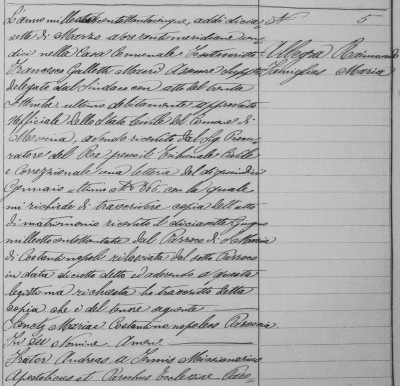 L'anno milleottocentottantacinque, addì diciasette di Marzo a ore venti meridiane undici nella Casa Comunale. Io sottoscritto
Francesco Galletti Assessore Supplente
delegato dal Sindaco con atto del trenta
Settembre ultimo debitamente approvato
Uffiziale dello Stato Civile del Comune di
Messina, avendo ricevuto dal Sig. Procu-
ratore del Re presso il Tribunale Civile
e Correzionale una lettera del dì quindici
Gennaio ultimo N. 366 con la quale
mi richiede di trascrivere copia dell'atto
di matrimonio ricevuto il diciasette Giugno
milleottocentottantatre dal Parroco di S. Maria
di Costantinopoli rilasciata dal sotto Parroco
in data detta ed aderendo a questa
legittima richiesta ho trascritto detta
copia che è del tenore seguente
Sanctae Mariae Costantinopoleos Paroecia
In Dei Nomine Amen
Frater Andreas a Missionarius
Apostolicus et Parochus Ecclesiae
N 5
Allegra Raimondo
Famiglias Maria